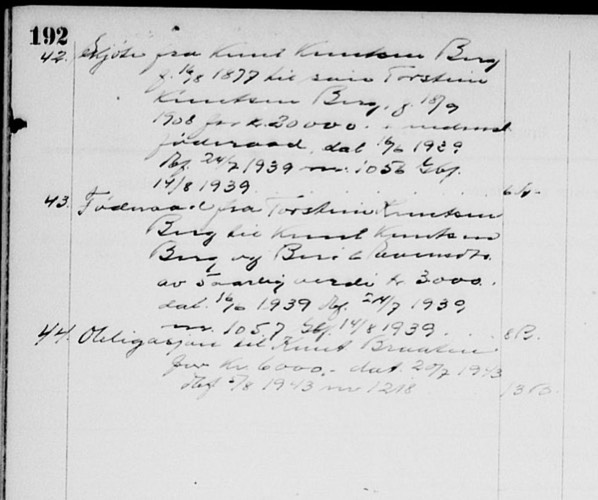 192
42. Skjøte fra Knut Knutsen Berg
f. 16/8 1877 til søn Torstein
Knutsen Berg, f 18/9
1908 for kr. 20000.
føderaad, dat 16/6 1939
Tbf. 24/7 1939 nr. 1056 Gbf.
14/8 1939.
43. Føderaad fra Torstein Knutsen
Berg til Knut Knutsen
Berg og
av 5aarlig verdi kr 3000.
dat. 16/6 1939 Tbf. 24/7 1939
nr. 1057 Gbf. 14/8 1939. 8 B.
44. Obligasjon til Knut Braaten
for Kr. 6000.- dat. 20/7 1943
Tbf /8 1943 nr 1218 13 B.